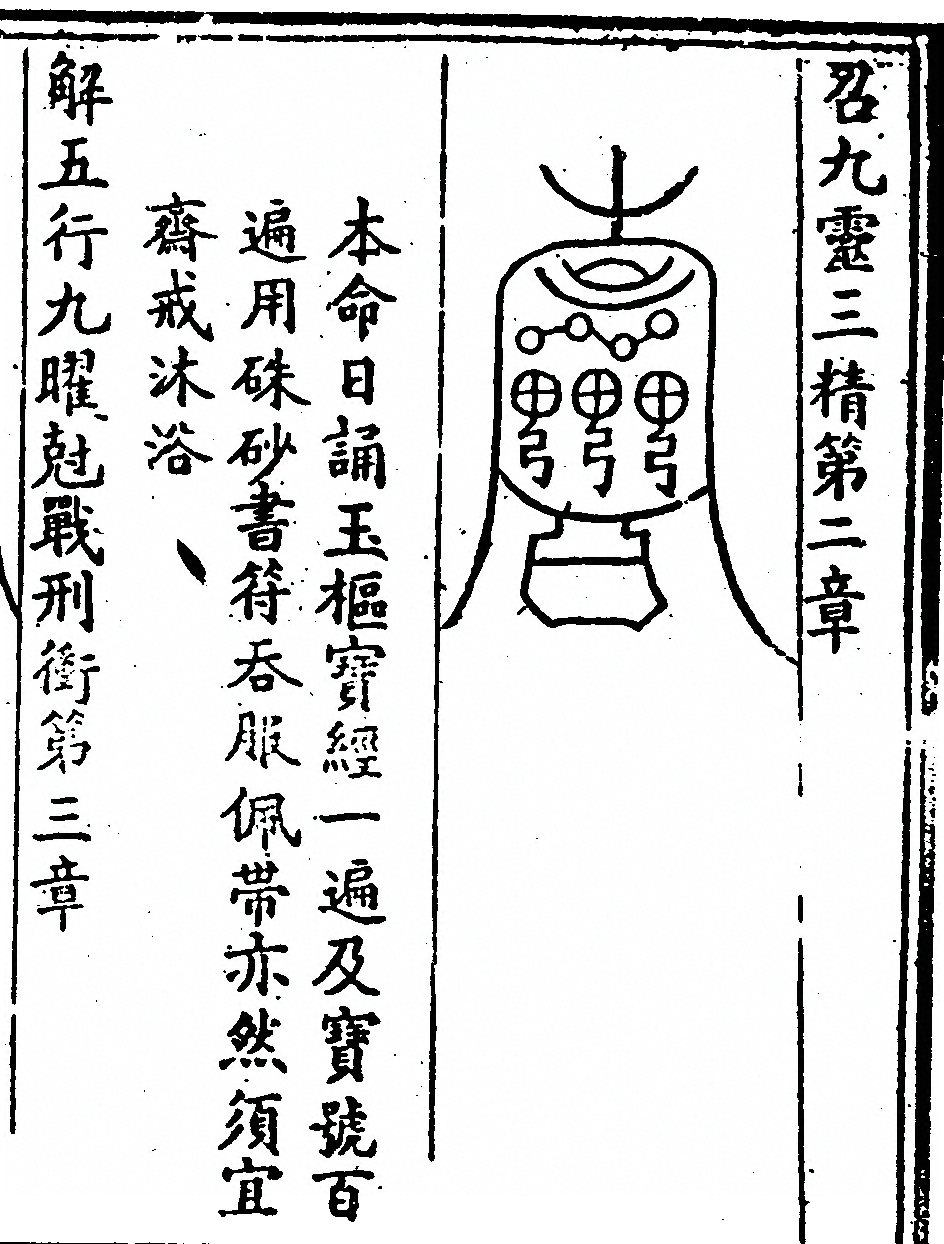 召九靈三精第二章
本命日誦玉樞寶經一遍及寶號百
遍用硃砂書符吞服佩帶亦然須宜
齋戒沐浴
解五行九曜尅戰刑衝第三章